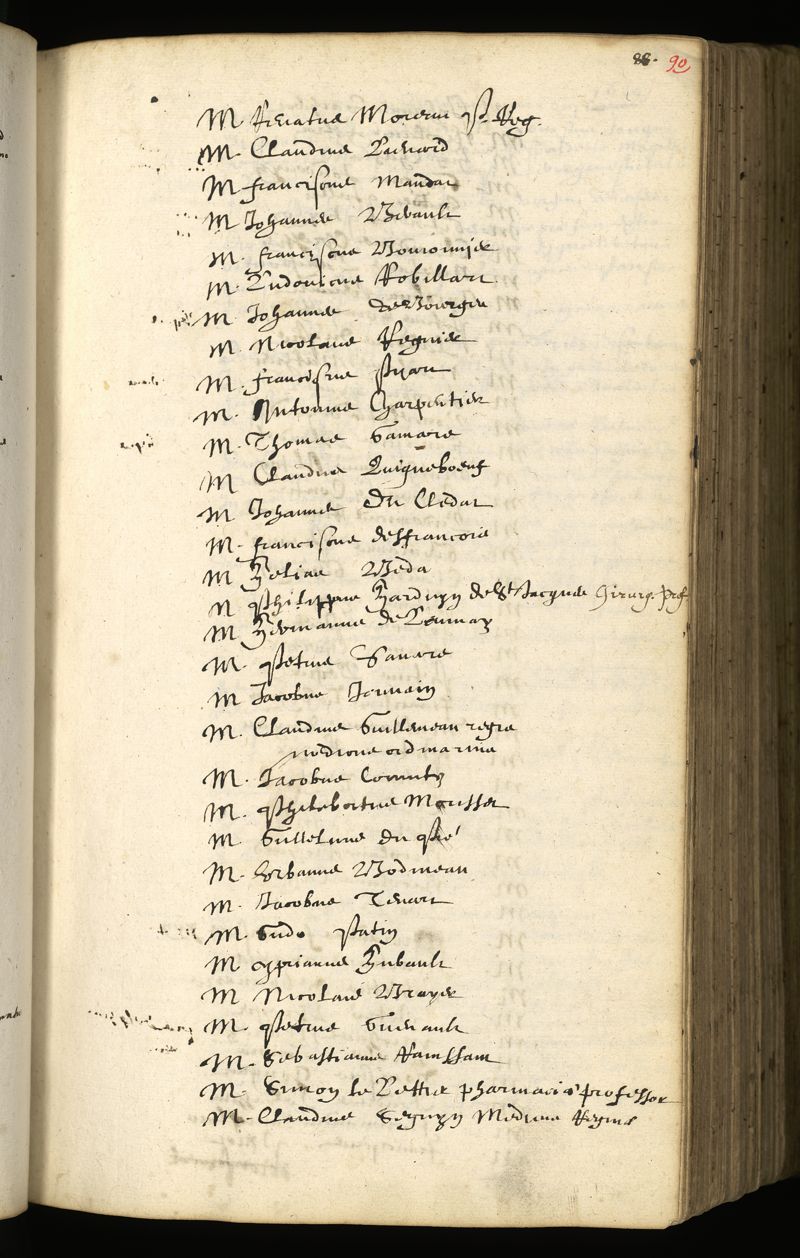 88. 90
M. Renatus Moreau p. Reg.
M. Claudius Lienard
M. franciscus Mandat
M. Johannes Bivault
M. franciscus Bouvonnier
M. Ludovicus Robillart
M. Johannes de Bourges
M. Nicolaus Regnier
M. franciscus Pijart
M. Antonius Charpentier
M. Thomas Gamare
M. Claudius Quiqueboeuf
M. Johannes Du Cledat
M. franciscus desfrancois
M. Helias Beda
M. Philippus Harduyn de St Jacques Chirurg. Prof.
M. Hermannus de Launay
M. Petrus
M. Jacobus Jouvain
M. Claudius Guillemeau regis
medicus ordinarius
M. Jacobus Cornuty
M. Philebertus Morisset
M. Guillelmus Du Pré
M. Urbanus Bodineau
M. Jacobus Thevart
M. Guido Patin
M. Cyprianus Hubault
M. Nicolaus Brayer
M. Petrus Guenault
M. Sebastianus Rainssant
M. Simon le Lettier pharmaciæ professor
M. Claudius Seguyn Medicus Reginæ